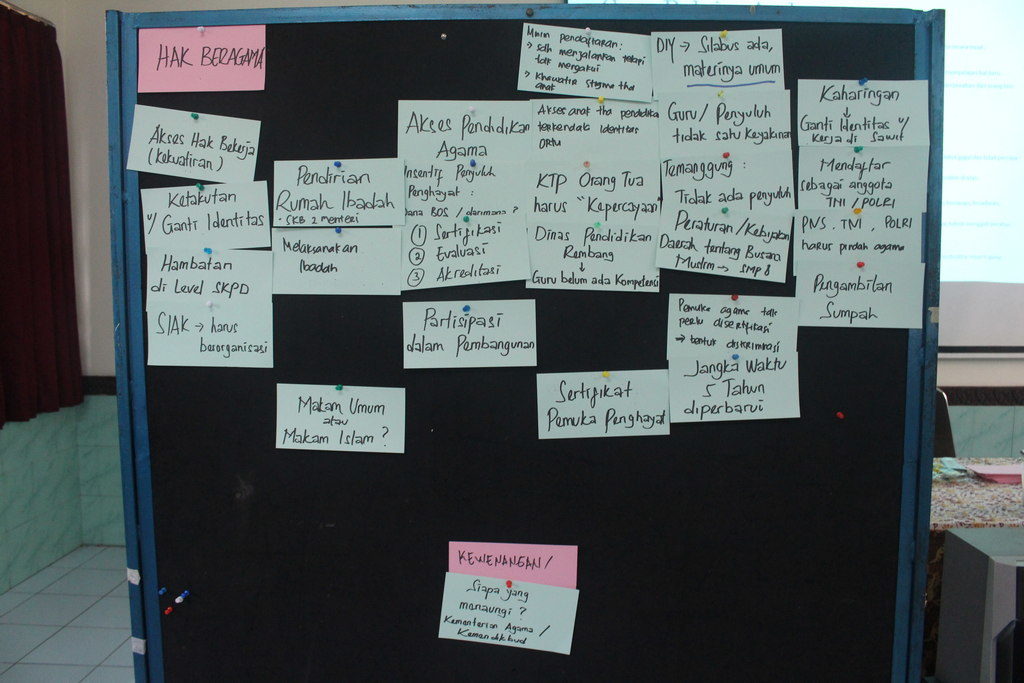 HAK BERAGAMA
Akses Hak Bekerja
(kekuatiran)
Ketakutan
u/ Ganti Identitas
Hambatan
di Level SKPD
SIAK → harus
berorganisasi
Pendirian
Rumah Ibadah
- SKB 2 menteri
Melaksanakan
Ibadah
Makam Umum
atau
Makam Islam ?
Akses Pendidikan
Agama
Insentif Penyuluh
Penghayat :
Dana BOS / darimana ?
① Sertifikasi
② Evaluasi
③ Akreditasi
Partisipasi
dalam Pembangunan
Minim pendaftaran :
> sdh menjalankan tetapi
tdk mengakui
> Khawatir stigma thd
anak
Akses anak thd pendidika
terkendala identitas
ORTU
KTP Orang Tua
harus "Kepercayaan
Dinas Pendidikan
Rembang
↓
Guru belum ada Kompetensi
Sertifikat
Pemuka Penghayat
DIY → Silabus ada,
materinya umum
Guru/ Penyuluh
tidak satu Keyakinan
Temanggung :
Tidak ada penyuluh
Peraturan /Kebijakan
Daerah tentang Busana
Muslim → SMP 8
Pemuka agama tdk
perlu disertifikasi
→ bentuk diskriminasi
Jangka Waktu
5 Tahun
diperbarui
Kaharingan
↓
Ganti Identitas u/
Kerja di Sawit
Mendaftar
sebagai anggota
TNI /POLRI
PNS, TNI, POLRI
harus pindah agama
Pengambilan
Sumpah
KEWENANGAN /
Siapa yang
menaungi ?
Kementerian Agama /
Kemendikbud